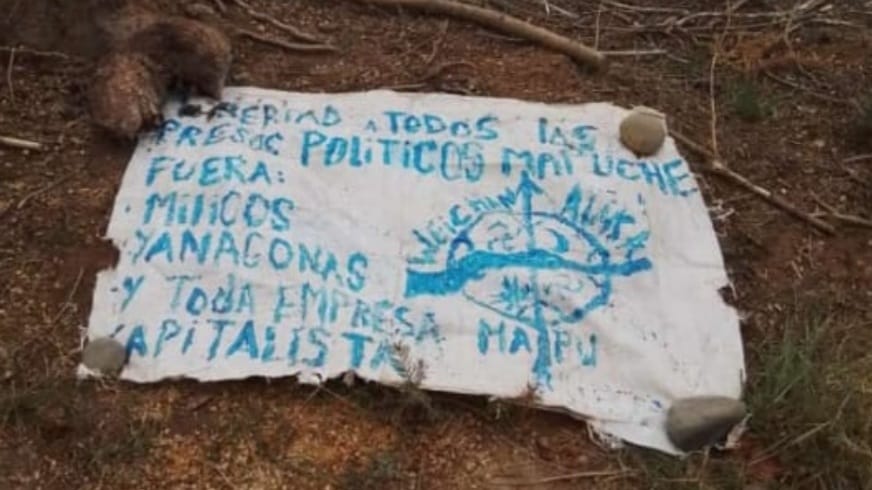 LIBERTAD A TODOS LAS
PRESOS POLITICOS MAPUCHE
FUERA:
· MILICOS
· YANACONAS
· Y TODA EMPRESA
KAPITALISTA
WEICHAN AUKA
MAPU